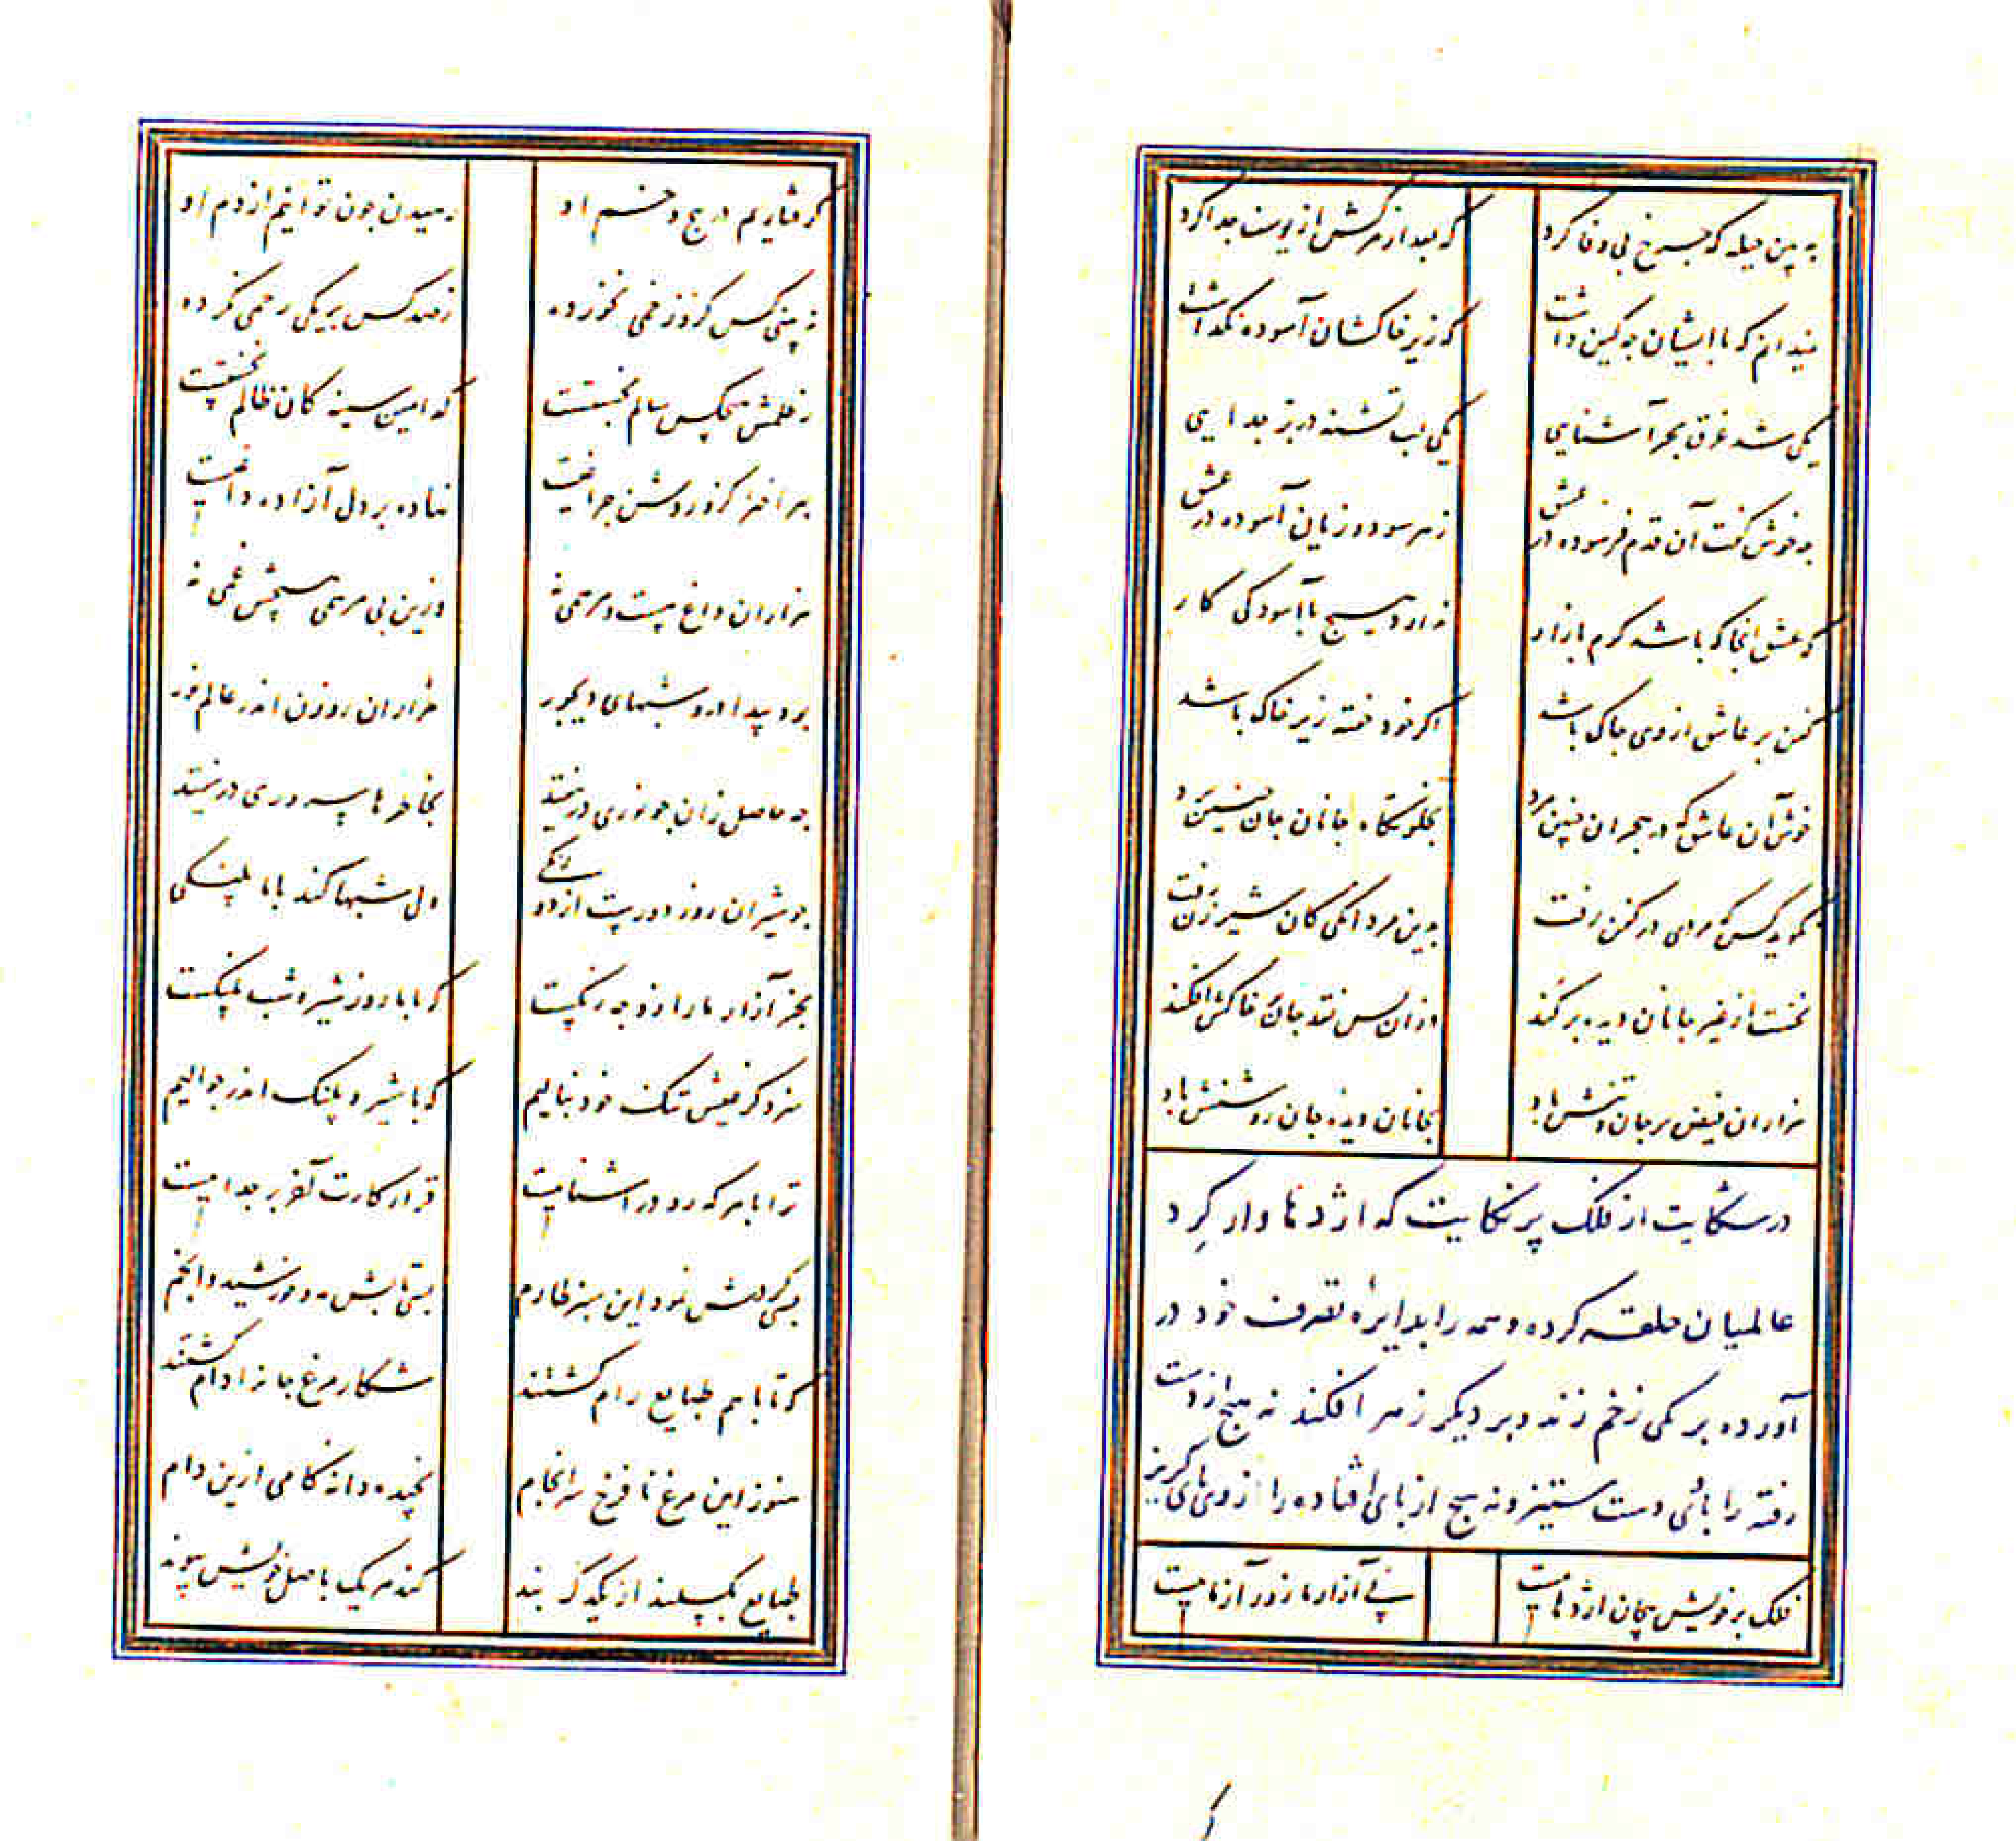 به بین حیله که چرخ بی وفا کرد
که بعد از مرگش از یوسف جدا کرد
نمیدانم که با ایشان چه کین داشت
که زیر خاکشان آسوده نگذاشت
یکی شد غرق بحر آشنایی
یکی لب تشنه در بر جدایی
چه خوش گفت آن قدم فرسوده در عشق
ز هر سود و زیان آسوده در عشق
که عشق انجا که باشد گرم بازار
ندارد هیچ با آسودگی کار
کفن بر عاشق از وی چاک باشد
اگر خود خفته زیر خاک باشد
خوش آن عاشق که در هجران چنین مرد
بخلوتگاه جانان جان چنین برد
نگوید کس که مردی در کفن رفت
بدین مردانگی کان شیر زن رفت
نخست از غیر جانان دیده برکند
وزان پس نقد جان بر خاکش افکند
هزاران فیض بر جان و تنش باد
بجانان دیده جان روشنش باد
در شکایت از فلک پر نکایت که اژدها وار گرد
عالمیان حلقه کرده و همه را بدایرهٔ تصرف خود در
آورده بر یکی زخم زند و بر دیگر زهر افکند نه هیچ از دست
رفته را بائی دست ستیز و نه هیچ از پای افتاده را از وی پای گریز
فلک بر خویش پیچان اژدهاییست
پی آزار ما زور آزماییست
گرفتاریم در پیچ و خم او
رمیدن چون توانیم از دم او
نه بینی کس کزو زخمی نخورده
ز صد کس بر یکی رحمی نکرده
ز ظلمش هیچکس سالم نجستست
کدامین سینه کان ظالم نخستست
بهر اختر کزو روشن چراغیست
نهاده بر دل آزاده داغیست
هزاران داغ هست و مرهمی نه
وزین بی مرهمی هیچش غمی نه
بود پیدا درو شبهای دیجور
هزاران روزن اندر عالم نور
چه حاصل زان چو نوری در نیفتد
بخاطرها سروری در نیفتد
چو شیران روز دورست از دو رنگی
ولی شبها کند با ما پلنگی
بجز آزار ما را زو چه رنگست
که با ما روز شیر و شب پلنگست
سزد گر ز عیش تنگ خود بنالیم
که با شیر و پلنگ اندر جوالیم
ترا با هر که رو در آشناییست
قرار کارت آخر بر جداییست
بسی گردش نمود این سبز طارم
بسی تابش مه و خورشید و انجم
که تا با هم طبایع رام گشتند
شکار مرغ جانرا دام گشتند
هنوز این مرغ نا فرخ سرانجام
نچیده دانه کامی ازین دام
طبایع بگسلند از یکدگر بند
کند هر یک باصل خویش پیوند